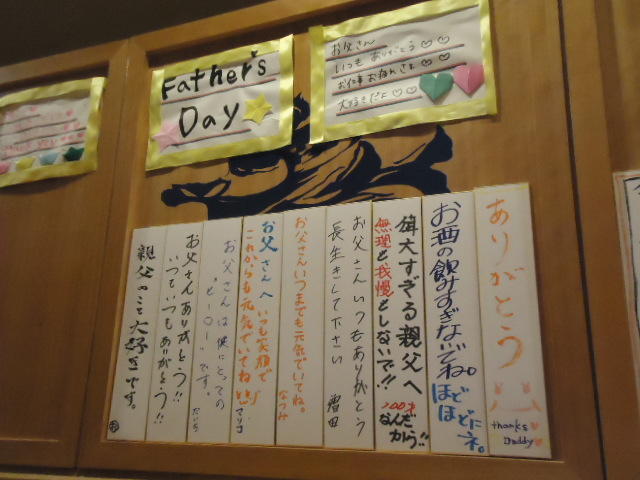 Father's
Day
お父さん
いつも ありがとう♡♡
お仕事 おつかれさま ♡♡
大好きだよ♡♡
ありがとう
thanks
Daddy
お酒の飲みすぎないでね。
ほどほどにネ。
偉大すぎる親父へ
無理と我慢としないで!!
なんだから!!
お父さん いつも ありがとう
長生きして下さい
増田
お父さんいつまでも元気でいてね。
なつみ
お父さんへ いつも笑顔で
これからも元気でいてね
マリコ
お父さんは僕にとっての
"ヒーロー"です。
だいち
お父さん ありがとう!!
いつも いつも ありがとう!!
親父のこと大好きです。